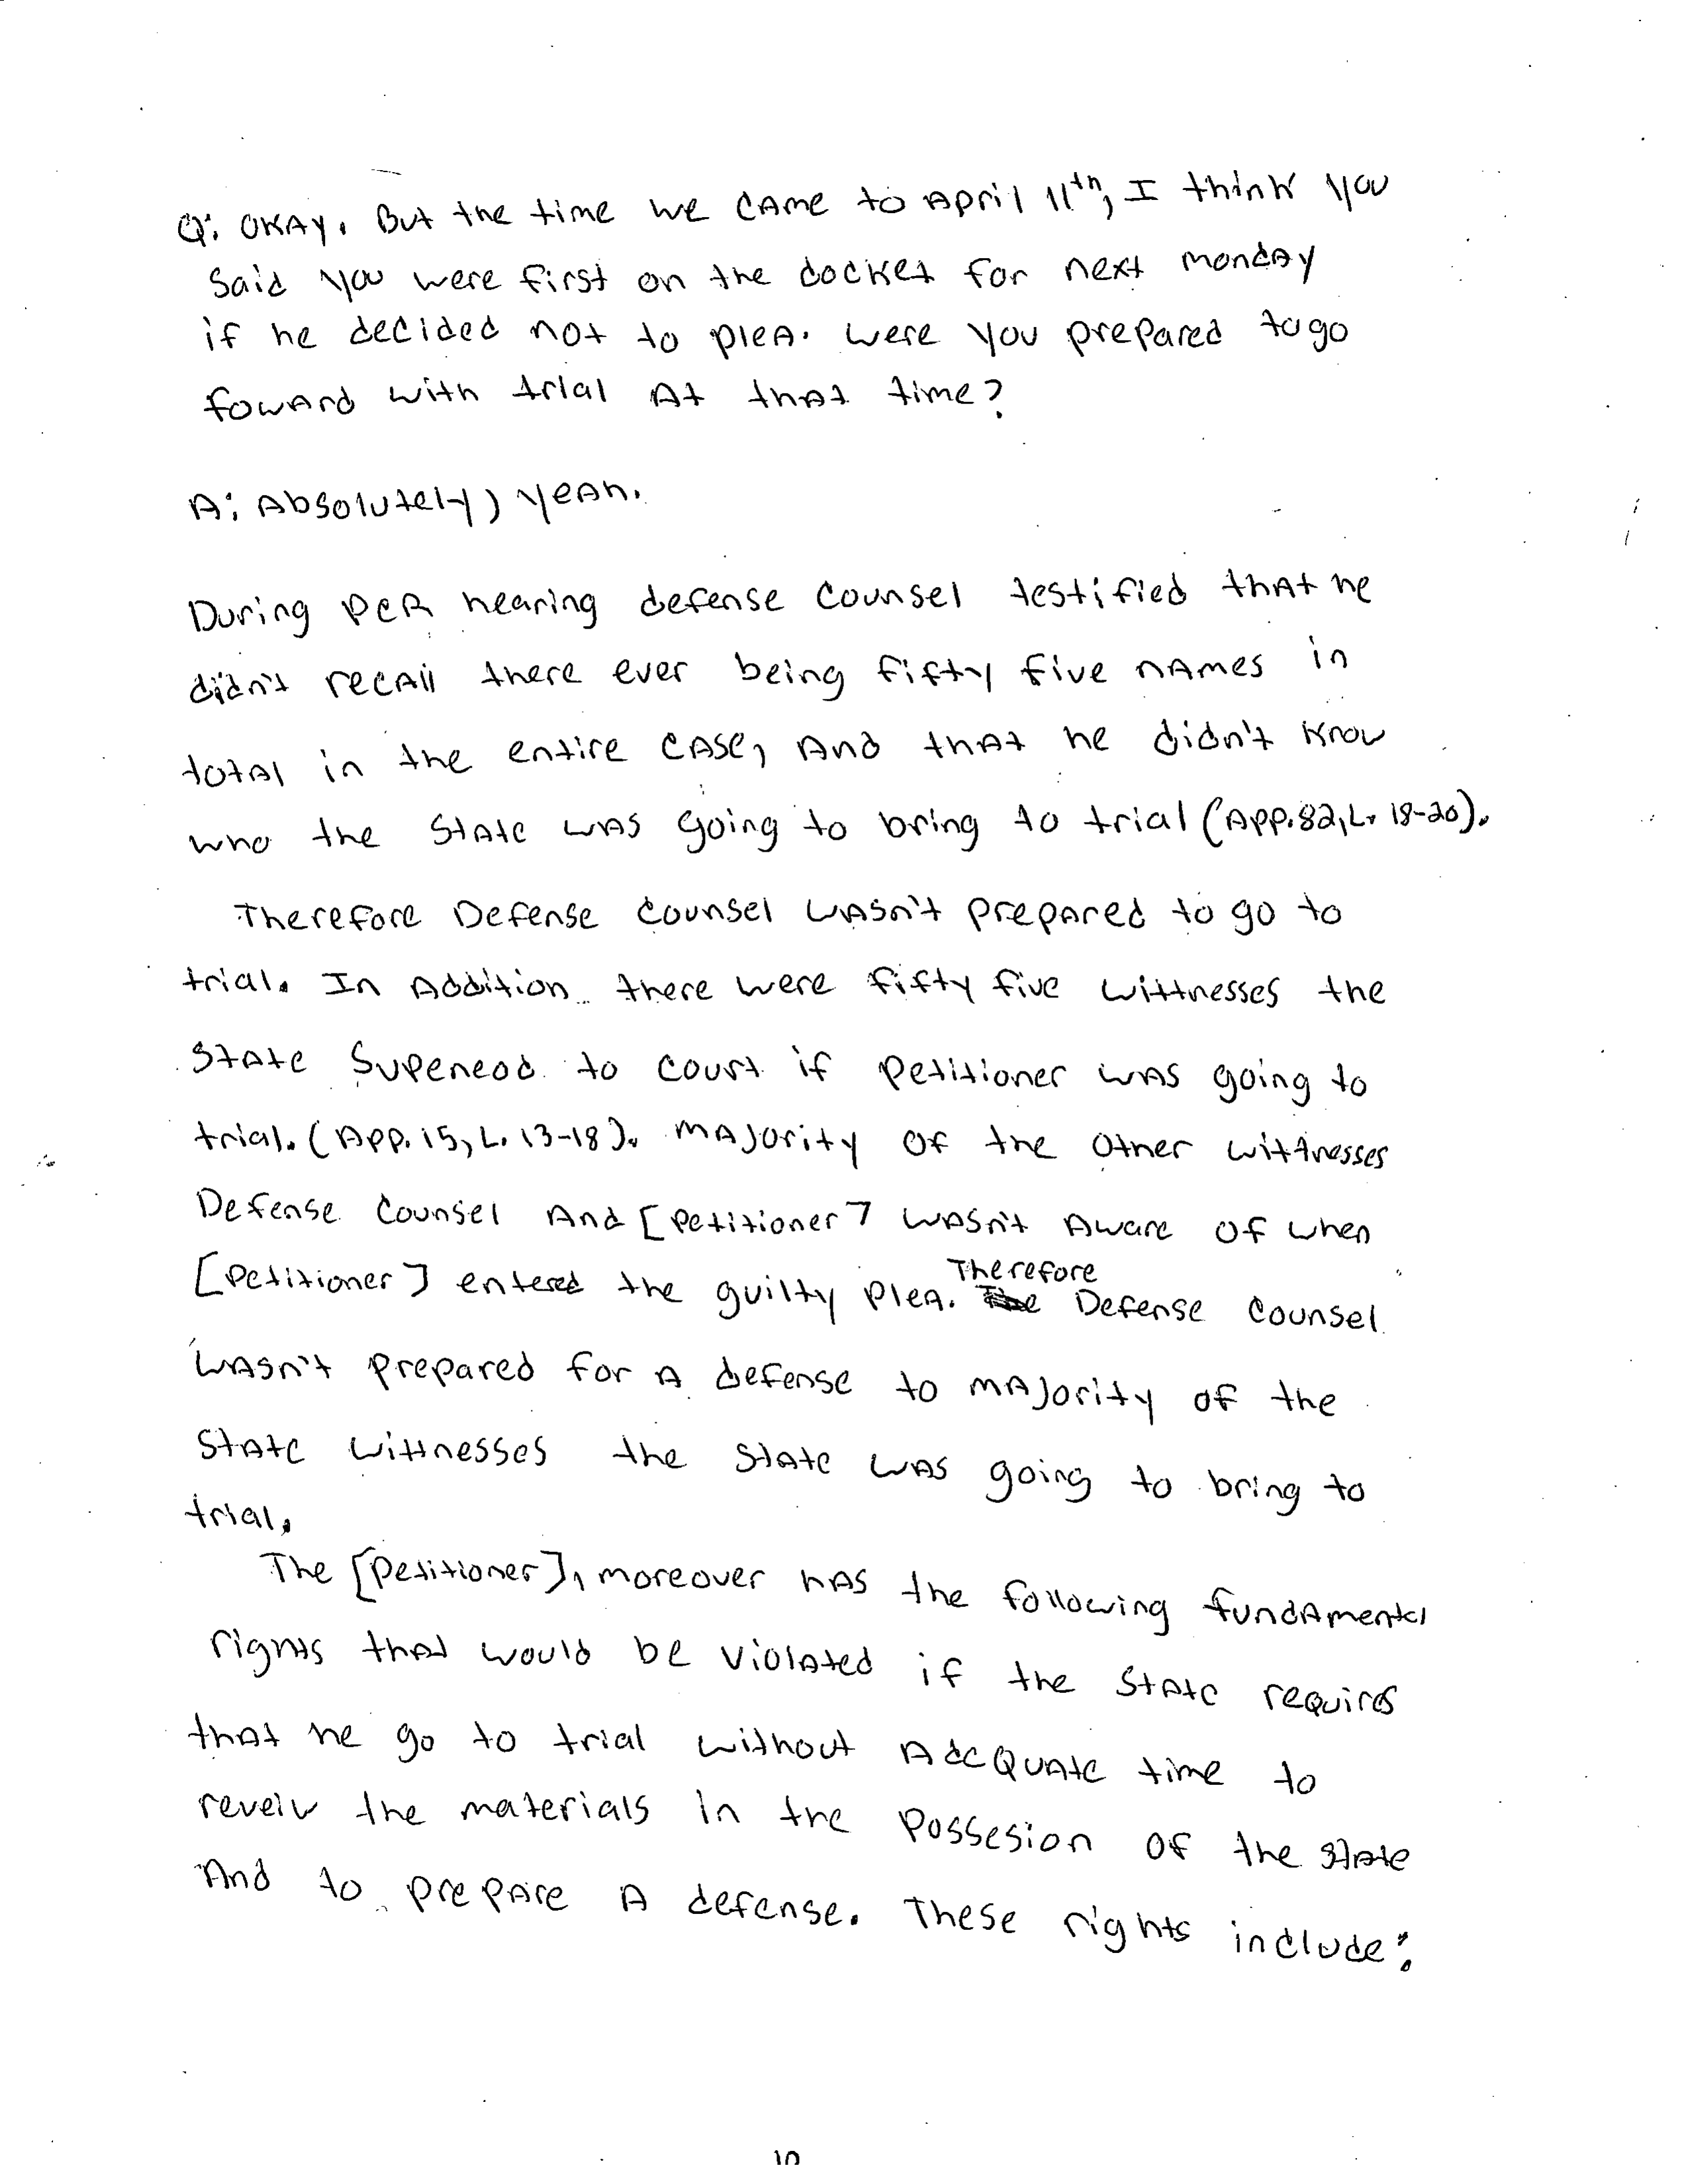 Q: Okay. But the time we came to April 11th, I think you
said you were first on the docket for next monday
if he decided not to plea. Were you prepared to go
foward with trial at that time?
A: Absolutely, yeah.
During PCR hearing defense counsel testified that he
didn't recall there ever being fifty five names in
total in the entire case, and that he didn't know
who the state was going to bring to trial (App. 82, L. 18-20).
Therefore Defense counsel wasn't prepared to go to
trial. In addition there were fifty five wittnesses the
state supeneod to court if petitioner was going to
trial. (App. 15, L. 13-18). Majority of the other wittnesses
Defense counsel and [petitioner] wasn't aware of when
[petitioner] entered the guilty plea. Therefore Defense counsel
wasn't prepared for a defense to majority of the
state wittnesses the state was going to bring to
trial.
The [petitioner], moreover has the following fundamental
rights that would be violated if the state requires
that he go to trial without adequate time to
reveiw the materials in the possesion of the state
and to prepare a defense. These rights include:
10